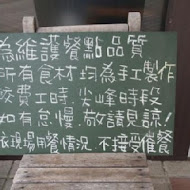 為維護餐點品質
所有食材均為手工製作
較費工時,尖峰時段
如有怠慢,敬請見諒!
依現場用餐情況 不接受催餐